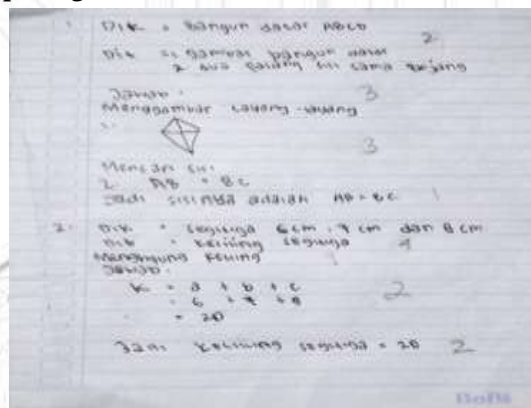 1. Dik = Bangun datar ABCD 2
Dit = gambar bangun datar
2 dua pasang sisi sama panjang
Jawab : 3
Menggambar layang-layang
1.
3
Mencari sisi
2 AB = BC
Jadi sisinya adalah AB = BC 1
2. Dik = segitiga 6 cm, 7 cm dan 8 cm
Dit = keliling segitiga 1
Menghitung keliling
Jawab :
K = a + b + c
= 6 + 7 + 8 2
= 20
Jadi keliling segitiga = 20 2